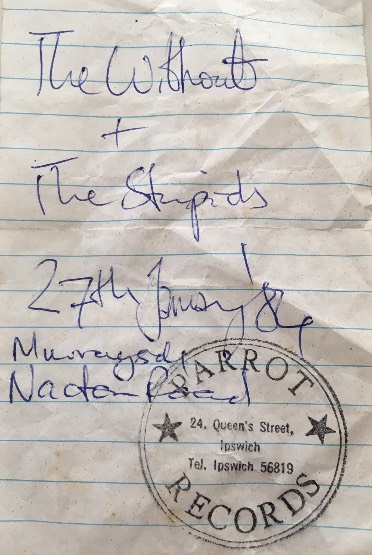 The Without
+
The Stupids
27th January '84
Murrayside
Nacton Road
PARROT
24. Queen's Street,
Ipswich
Tel. Ipswich 56819
RECORDS